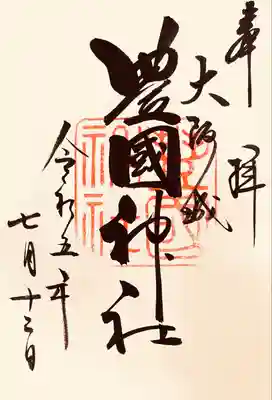 奉拝
大阪城
豊國神社
令和五年
七月十三日